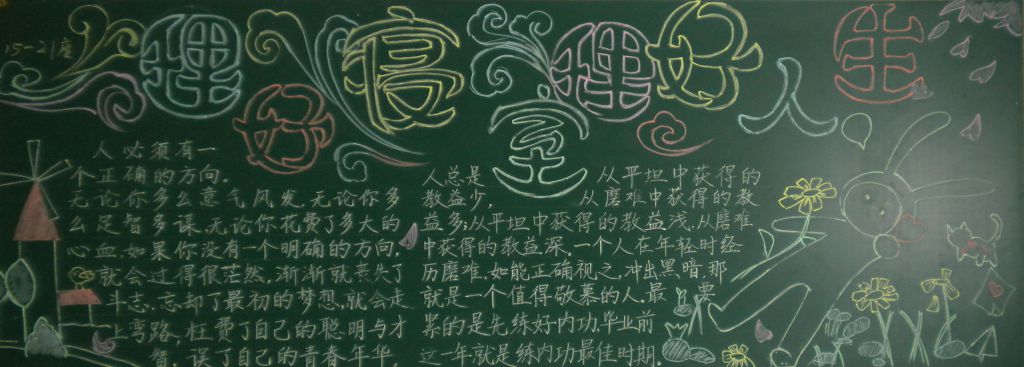 15-21度
理好寝室理好人生
人必须有一
个正确的方向。
无论你多么意气风发,无论你多
么足智多谋,无论你花费了多大的
心血,如果你没有一个明确的方向,
就会过得很茫然,渐渐就丧失了
斗志,忘却了最初的梦想,就会走
上弯路,枉费了自己的聪明与才
智,误了自己的青春年华。
人总是从平坦中获得的
教益少,从磨难中获得的教
益多;从平坦中获得的教益浅,从磨难
中获得的教益深。一个人在年轻时经
历磨难,如能正确视之,冲出黑暗,那
就是一个值得敬慕的人。最要
紧的是先练好内功,毕业前
这一年就是练内功最佳时期。